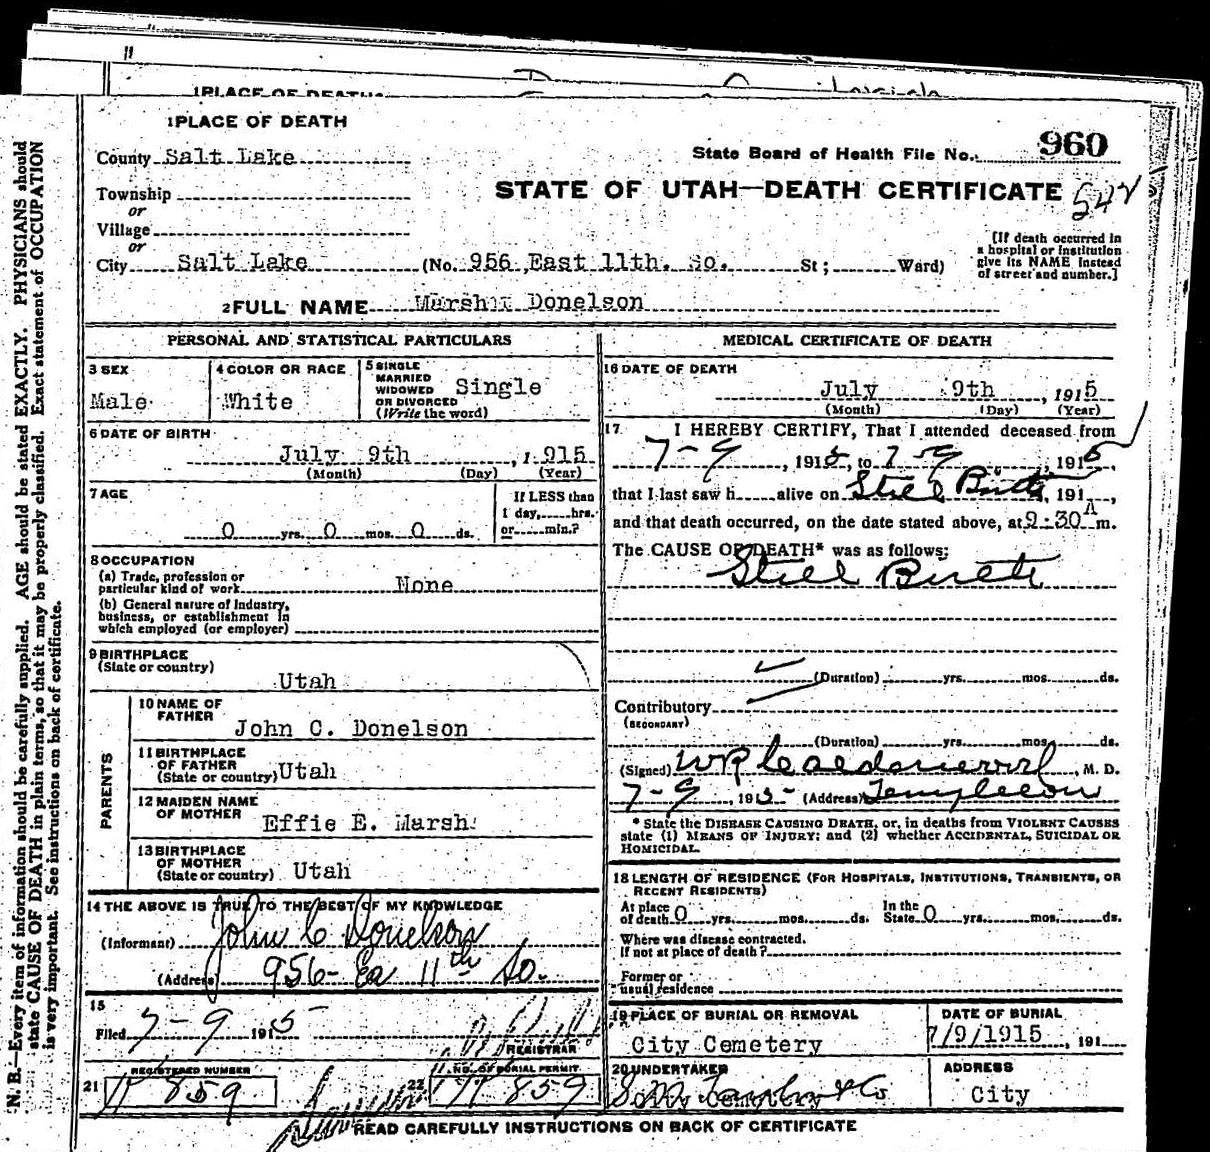 1 PLACE OF DEATH
1 PLACE OF DEATH
County Salt Lake
State Board of Health File No. 960
Township
STATE OF UTAH—DEATH CERTIFICATE
or
Village
or
City Salt Lake (No. 956 East 11th. So. St; Ward)
[If death occurred in
a hospital or institution
give its NAME instead
of street and number.]
2 FULL NAME Marsh Donelson
PERSONAL AND STATISTICAL PARTICULARS
3 SEX
Male
4 COLOR OR RACE
White
5 SINGLE
MARRIED
WIDOWED
OR DIVORCED
(Write the word)
Single
6 DATE OF BIRTH
July 9th , 1 915
(Month) (Day) (Year)
7 AGE
0 yrs. 0 mos. 0 ds.
If LESS than
1 day, hrs.
or min.?
8 OCCUPATION
(a) Trade, profession or
particular kind of work None
(b) General nature of Industry,
business, or establishment in
which employed (or employer)
9 BIRTHPLACE
(State or country)
Utah
PARENTS
10 NAME OF
FATHER
John C. Donelson
11 BIRTHPLACE
OF FATHER
(State or country) Utah
12 MAIDEN NAME
OF MOTHER
Effie E. Marsh
13 BIRTHPLACE
OF MOTHER
(State or country) Utah
14 THE ABOVE IS TRUE TO THE BEST OF MY KNOWLEDGE
(Informant) John C Donelson
(Address) 956 Ea 11th So.
15
Filed 7-9 1915
REGISTRAR
21 REGISTERED NUMBER
859
22 NO. OF BURIAL PERMIT
859
MEDICAL CERTIFICATE OF DEATH
16 DATE OF DEATH
July 9th , 1915
(Month) (Day) (Year)
17 I HEREBY CERTIFY, That I attended deceased from
7-9 , 1915, to 7-9 , 1915
that I last saw h alive on Still Birth, 191 ,
and that death occurred, on the date stated above, at 9:30 A m.
The CAUSE OF DEATH* was as follows:
Still Birth
(Duration) yrs. mos. ds.
Contributory
(SECONDARY)
(Duration) yrs. mos. ds.
(Signed) , M. D.
7-9 , 1915 (Address) Templeton
* State the DISEASE CAUSING DEATH, or, in deaths from VIOLENT CAUSES
state (1) MEANS OF INJURY; and (2) whether ACCIDENTAL, SUICIDAL OR
HOMICIDAL.
18 LENGTH OF RESIDENCE (FOR HOSPITALS, INSTITUTIONS, TRANSIENTS, OR
RECENT RESIDENTS)
At place
of death 0 yrs. mos. ds.
In the
State 0 yrs. mos. ds.
Where was disease contracted.
If not at place of death?
Former or
usual residence
19 PLACE OF BURIAL OR REMOVAL
City Cemetery
DATE OF BURIAL
7/9/1915 , 191
20 UNDERTAKER
ADDRESS
City
READ CAREFULLY INSTRUCTIONS ON BACK OF CERTIFICATE
N. B.—Every item of information should be carefully supplied. AGE should be stated EXACTLY. PHYSICIANS should
state CAUSE OF DEATH in plain terms, so that it may be properly classified. Exact statement of OCCUPATION
is very important. See instructions on back of certificate.